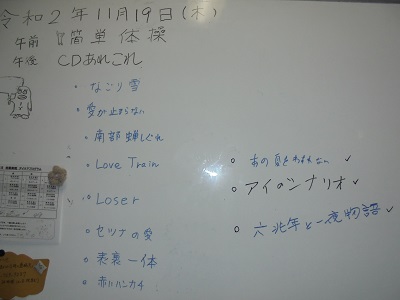 令和2年11月19日(木)
午前 簡単体操
午後 CDあれこれ
・なごり雪
・愛が止まらない
・南部蝉しぐれ
・Love Train
・Loser
・セツナの愛
・表裏一体
・赤いハンカチ
○あの日をわすれない ✓
○アイのシナリオ ✓
○六兆年と一夜物語 ✓